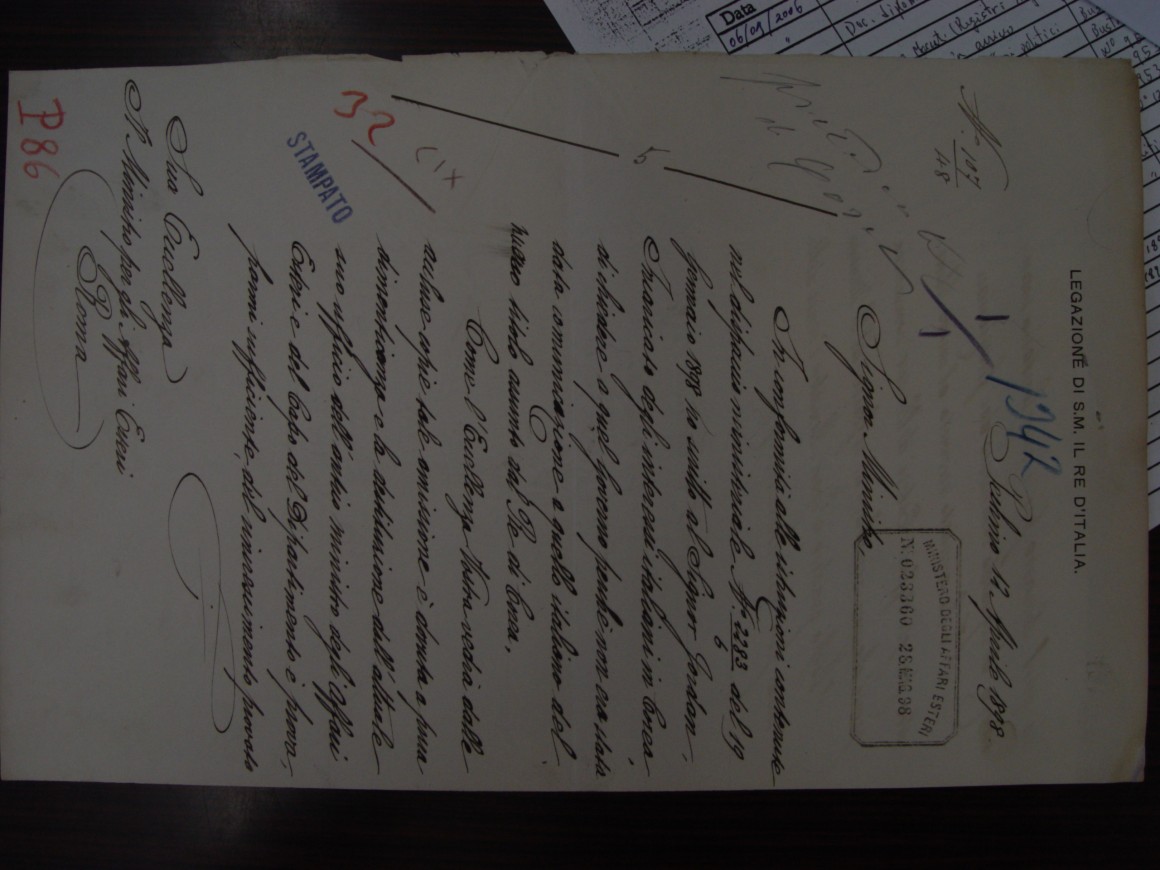 LEGAZIONE DI S.M. IL RE D'ITALIA.
N.° 107
48
1942
Pechino 14 Aprile 1898.
MINISTERO DEGLI AFFARI ESTERI
N. 023360 28.MAG.98
Signor Ministro,
In conformità alle istruzioni contenute
nel dispaccio ministeriale N.° 2283 del 19
6
Gennaio 1898 ho scritto al Signor Jordan,
Incaricato degli interessi italiani in Corea,
di chiedere a quel Governo perchè non era stata
data comunicazione a quello italiano del
nuovo titolo assunto dal Re di Corea.
Come l'Eccellenza Vostra vedrà dalle
accluse copie tale omissione è dovuta a pura
dimenticanza e la destituzione dall'attuale
suo ufficio dell'antico ministro degli Affari
Esteri e del Capo del Dipartimento è prova,
parmi sufficiente, del rincrescimento provato
5
32
CIX
STAMPATO
Sua Eccellenza
Il Ministro per gli Affari Esteri
Roma
P86
Data
06/09/2006